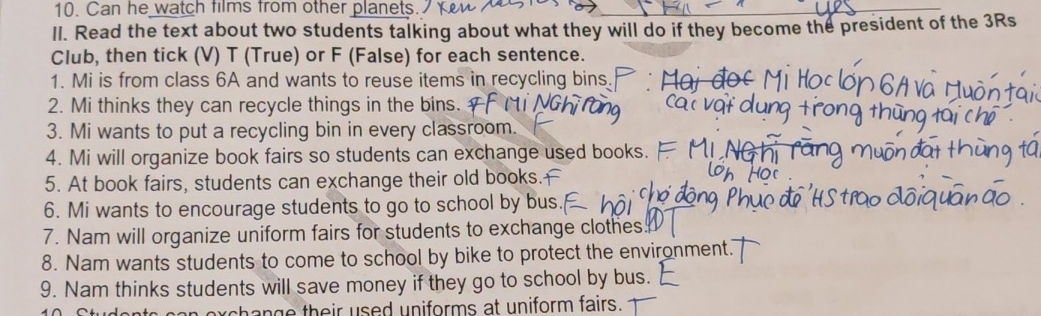 10. Can he watch films from other planets. yes
II. Read the text about two students talking about what they will do if they become the president of the 3Rs
Club, then tick (V) T (True) or F (False) for each sentence.
1. Mi is from class 6A and wants to reuse items in recycling bins. F : Mi Học lớn 6A và Muốn tái
2. Mi thinks they can recycle things in the bins. F Mi Nghĩ rằng các vật dụng trong thùng tái chế.
3. Mi wants to put a recycling bin in every classroom. F
4. Mi will organize book fairs so students can exchange used books. F Mi Nghĩ rằng muốn đặt thùng tá
lớn Học.
5. At book fairs, students can exchange their old books. F
6. Mi wants to encourage students to go to school by bus. F hội chợ đồng Phục để HS trao đổi quần áo.
7. Nam will organize uniform fairs for students to exchange clothes. T
8. Nam wants students to come to school by bike to protect the environment. T
9. Nam thinks students will save money if they go to school by bus. F
10. Students can exchange their used uniforms at uniform fairs. T